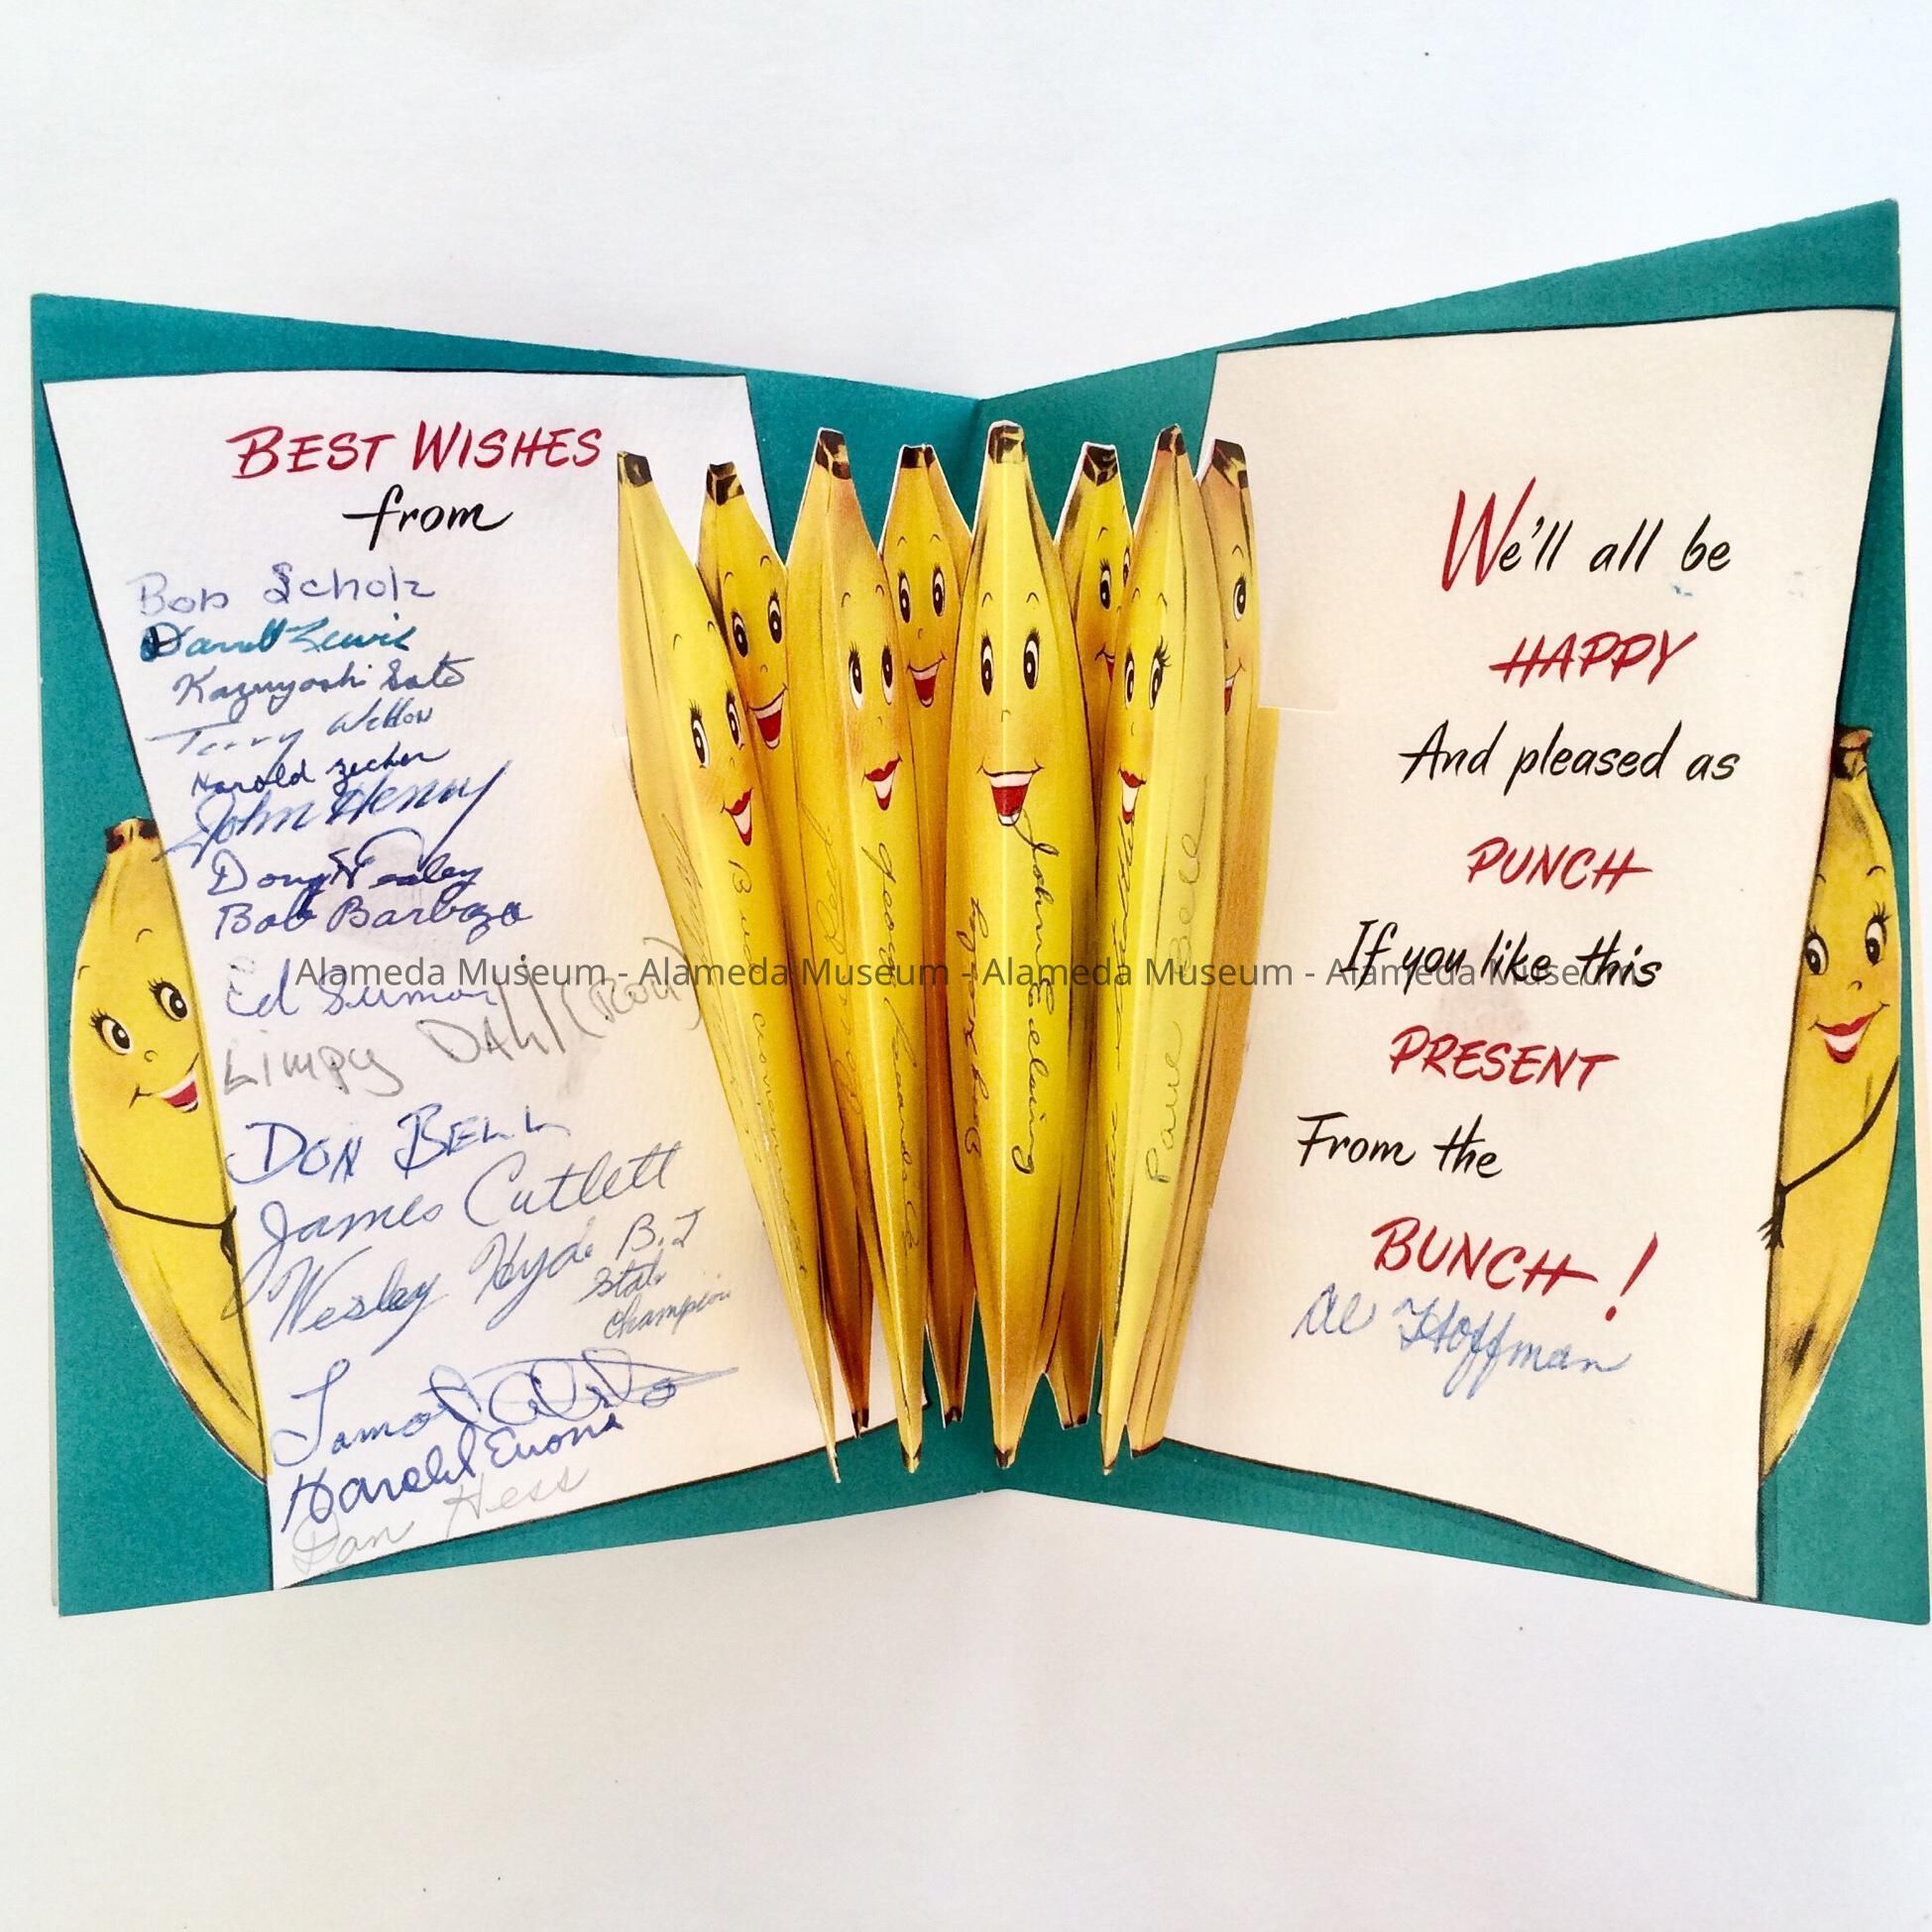 BEST WISHES
from
Bob Scholz
Darrell Lewis
Kazuyoshi Sato
Terry
Harold Zecher
John Henny
Doug Nealey
Bob Barboza
Ed
Limpy DAHl (Ron)
DON BELL
James Cutlett
Wesley Hyde B.J
State
Champion
Harold Evans
Dan Hess
Buck
George
John
Paul Bell
We'll all be
HAPPY
And pleased as
PUNCH
If you like this
PRESENT
From the
BUNCH!
Al Hoffman
Alameda Museum - Alameda Museum - Alameda Museum - Alameda Museum